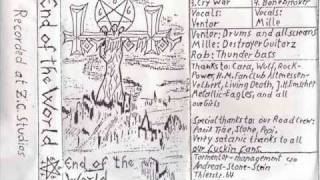 End of the World
Recorded at Z.C. Studios
Tormentor
End of the
World
3.Cry War
4. Bonebreaker
Vocals:
Vocals:
Ventor
Mille
Ventor: Drums and all screams
Mille: Destroyer Guitarz
Rob: Thunder bass
Thanks to: Cara, Wulf, Rock-
Power, H.M.Fanclub Altenessen-
Velbert, Living Death, J.H.Emscher
Metallic-Eagles, and all
our Girls
Special thanks to our Road Crew:
Stone, Pepi,
Verty satanic thanks to all
our fuckin Fans.
Tormentor-management c/o
Andreas-Stone-Stein